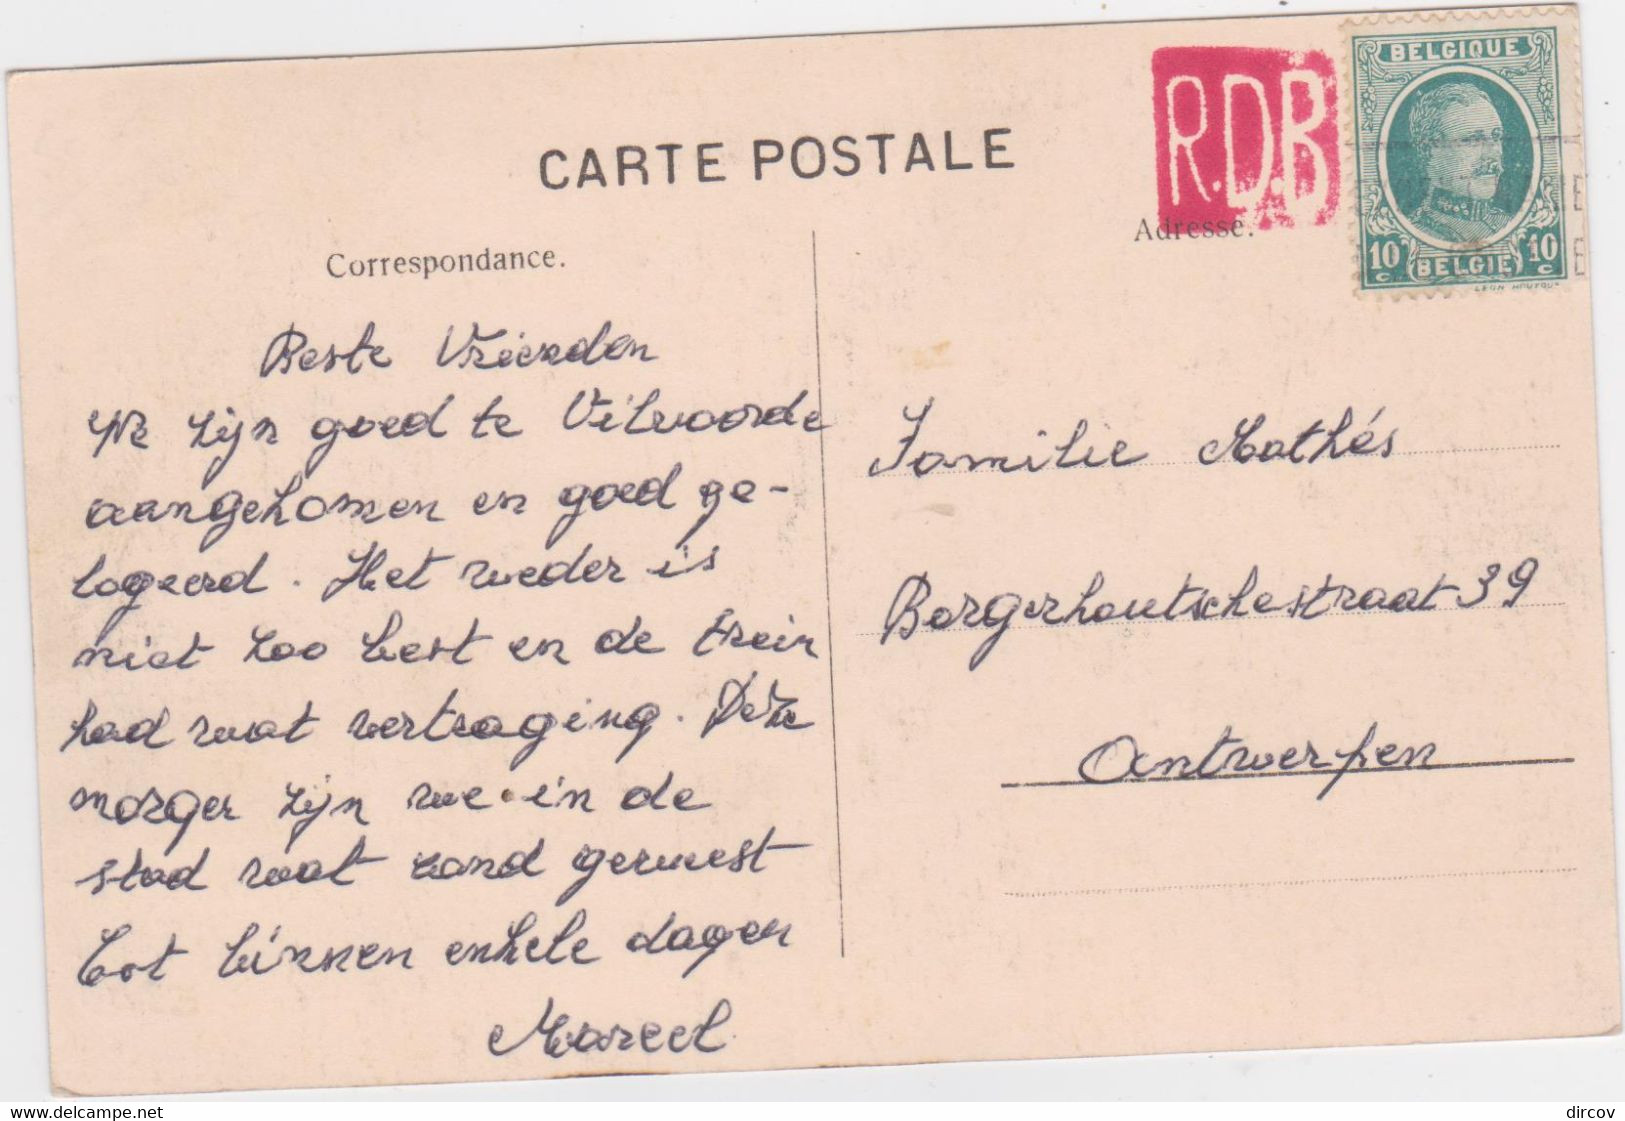 CARTE POSTALE
R.D.B
BELGIQUE
10 c BELGIE 10 c
Correspondance.
Adresse.
Beste Vrienden
We zijn goed te Vilvoorde
aangekomen en goed ge-
logeerd. Het weder is
niet zoo best en de trein
had wat vertraging. Deze
morgen zijn we in de
stad wat rond geweest
Tot binnen enkele dagen
Marcel
Familie Mathés
Borgerhoutschestraat 39
Antwerpen
www.delcampe.net
dircov